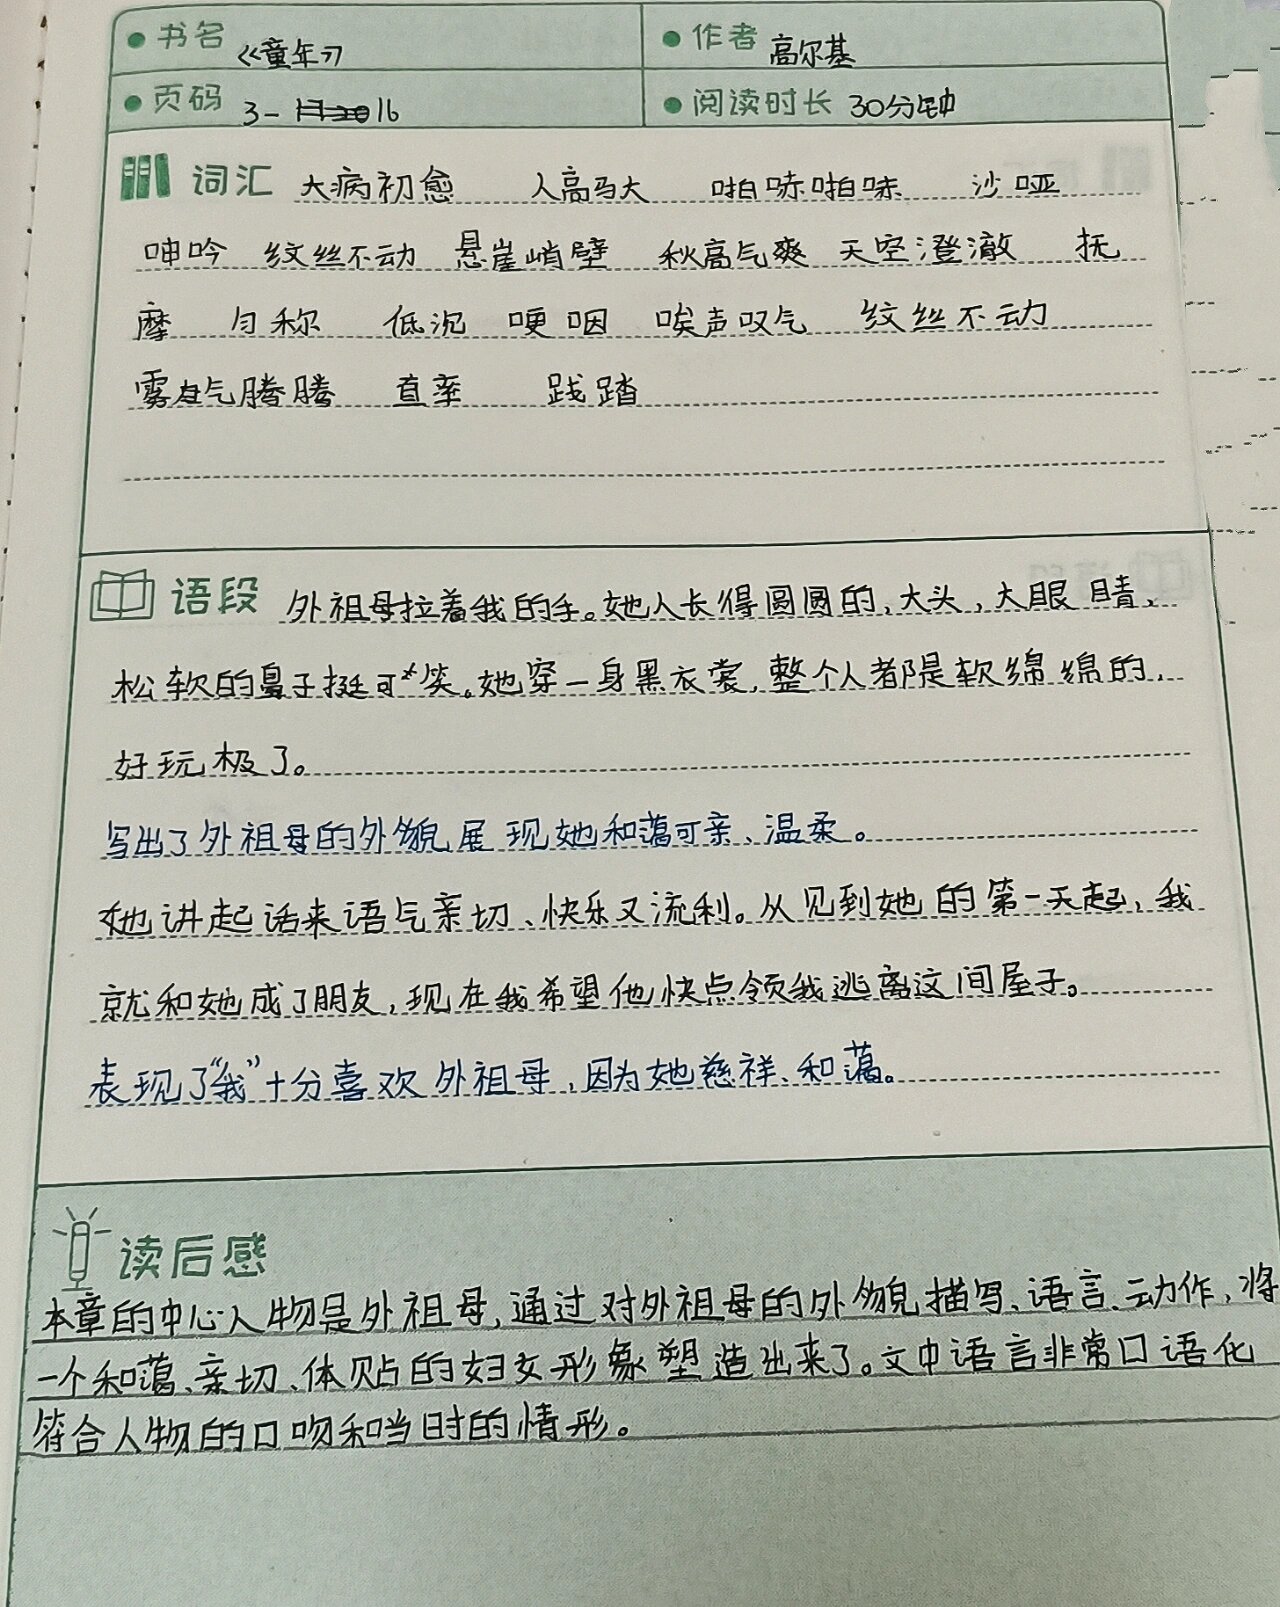 书名 《童年》 作者 高尔基
页码 3-16 阅读时长 30分钟
词汇 大病初愈 人高马大 啪哧啪哧 沙哑
呻吟 纹丝不动 悬崖峭壁 秋高气爽 天空澄澈 抚
摩 匀称 低沉 哽咽 唉声叹气 纹丝不动
雾气腾腾 直率 践踏
语段 外祖母拉着我的手。她人长得圆圆的,大头,大眼睛、
松软的鼻子挺可笑。她穿一身黑衣裳,整个人都是软绵绵的,
好玩极了。
写出了外祖母的外貌,展现她和蔼可亲、温柔。
她讲起话来语气亲切、快乐又流利。从见到她的第一天起,我
就和她成了朋友,现在我希望他快点领我逃离这间屋子。
表现了“我”十分喜欢外祖母,因为她慈祥、和蔼。
读后感
本章的中心人物是外祖母,通过对外祖母的外貌描写、语言、动作,将
一个和蔼、亲切、体贴的妇女形象塑造出来了。文中语言非常口语化
符合人物的口吻和当时的情形。